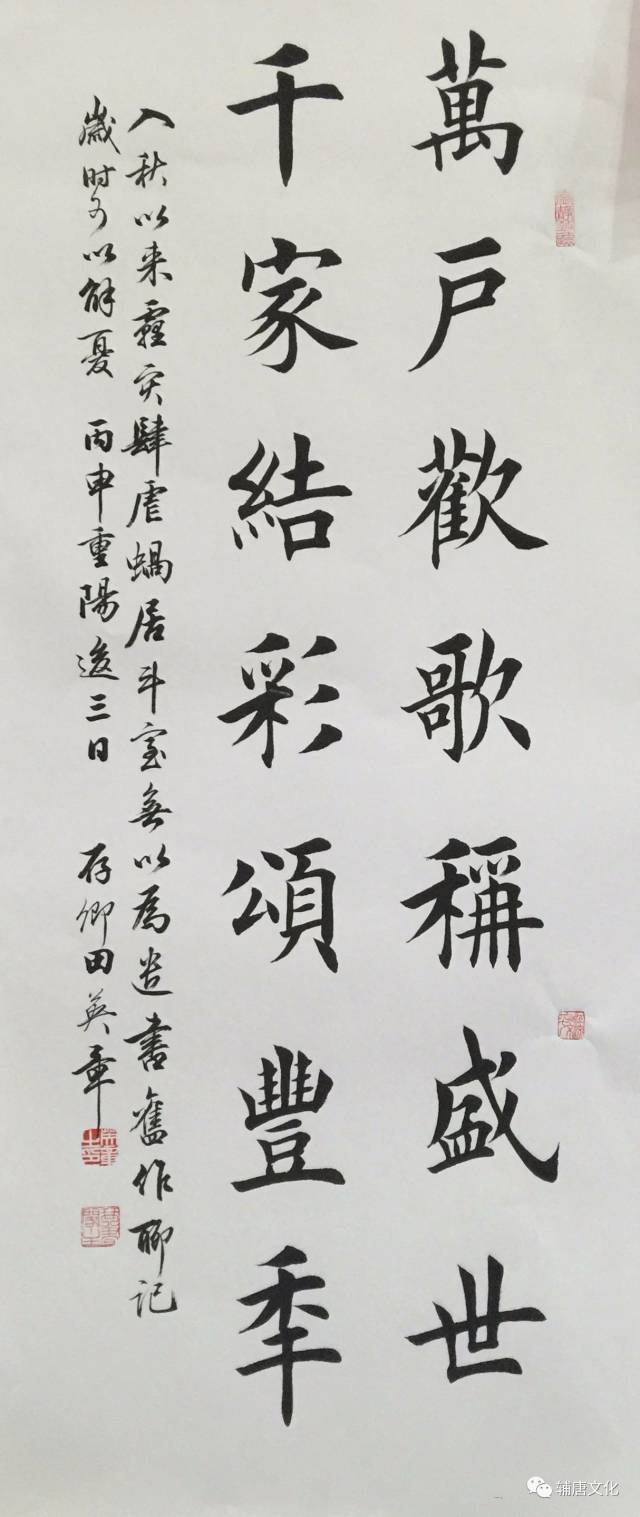 萬戶歡歌稱盛世
千家結彩頌豐季
入秋以来霾灾肆虐蝸居斗室無以為遣書舊作聊记
歲时可以解憂 丙申重陽後三日 存卿田英章
辅唐文化